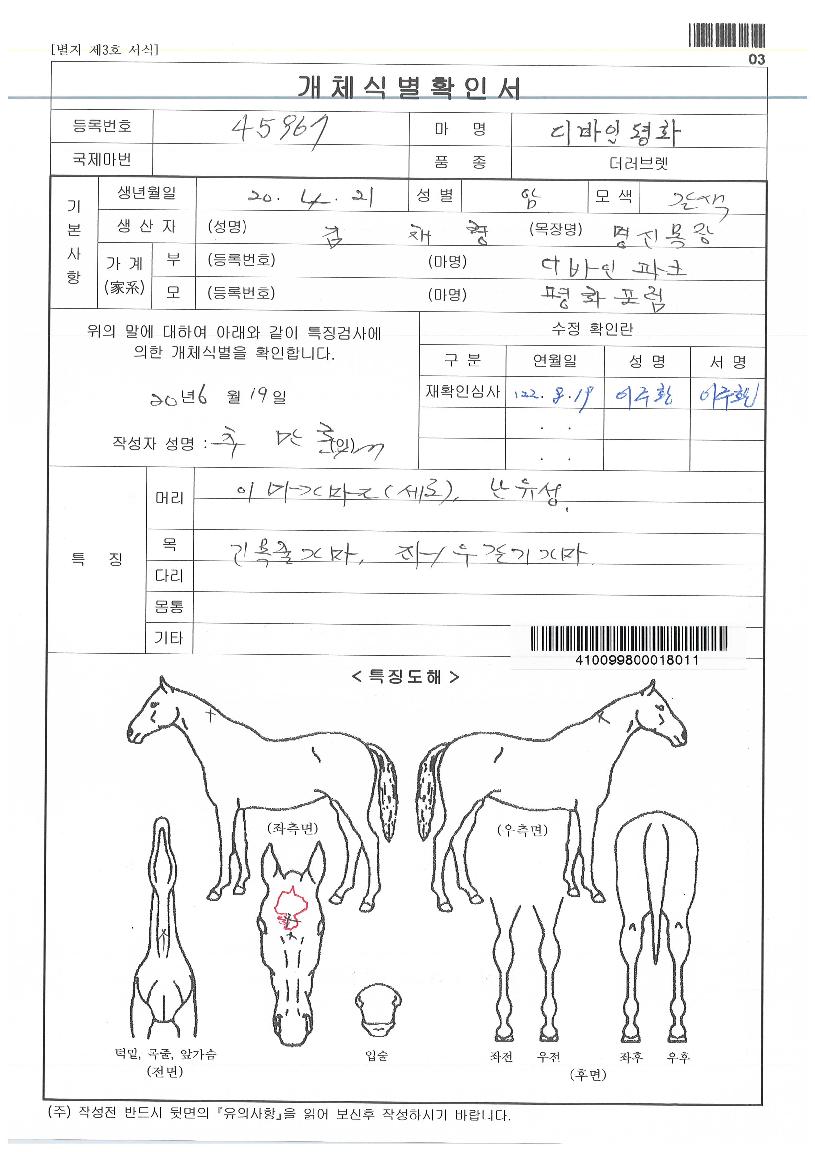 [별지 제3호 서식]
03
개체식별확인서
등록번호 45967 마 명 디바인평화
국제마번 품 종 더러브렛
기본사항
생년월일 20. 4. 21 성 별 암 모 색 갈색
생 산 자 (성명) 김 재 형 (목장명) 명진목장
가 계 (家系) 부 (등록번호) (마명) 디바인 파크
모 (등록번호) (마명) 평화포럼
위의 말에 대하여 아래와 같이 특징검사에
의한 개체식별을 확인합니다.
20년 6 월 19일
작성자 성명 : (인)
수정 확인란
구 분 연월일 성 명 서 명
재확인심사 '22. 8. 19 이주환 이주환
. .
. .
특 징
머리 이마가마 (세로), 난유성.
목 긴목줄가마, 좌우갈기가마
다리
몸통
기타
410099800018011
< 특징도해 >
(좌측면) (우측면)
턱밑, 목줄, 앞가슴
(전면)
입술
좌전 우전 좌후 우후
(후면)
(주) 작성전 반드시 뒷면의 『유의사항』을 읽어 보신후 작성하시기 바랍니다.